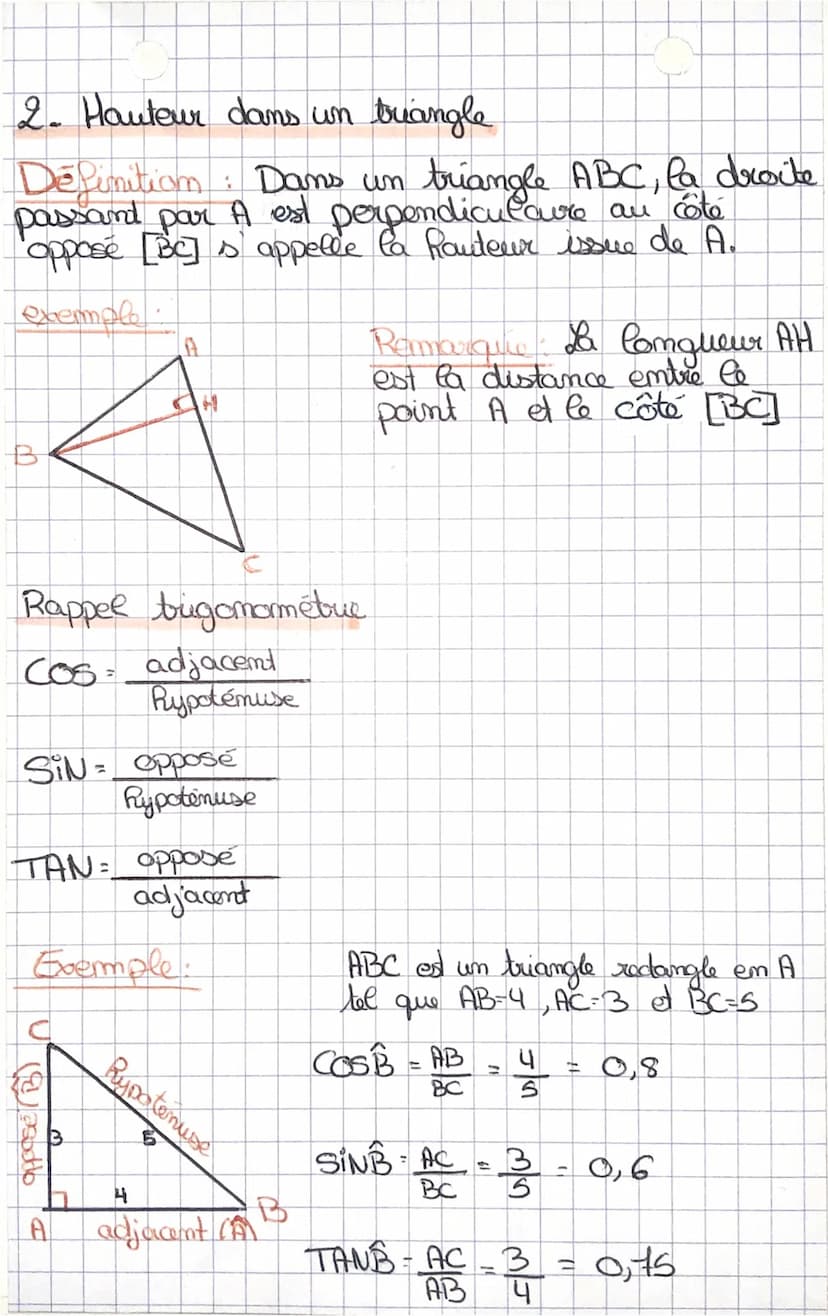 2- Hauteur dans un triangle
Définition : Dans un triangle ABC, la droite
passant par A est perpendiculaire au côté
opposé [BC] s'appelle la hauteur issue de A.
exemple :
A
H
B
C
Remarque : La longueur AH
est la distance entre le
point A et le côté [BC]
Rappel trigonométrie
COS = adjacent
hypoténuse
SiN = opposé
hypoténuse
TAN = opposé
adjacent
Exemple :
C
opposé (B̂)
hypoténuse
3
5
4
A
adjacent (Â)
B
ABC est un triangle rectangle en A
tel que AB=4, AC=3 et BC=5
COSB̂ = AB/BC = 4/5 = 0,8
SiNB̂ = AC/BC = 3/5 = 0,6
TANB̂ = AC/AB = 3/4 = 0,75